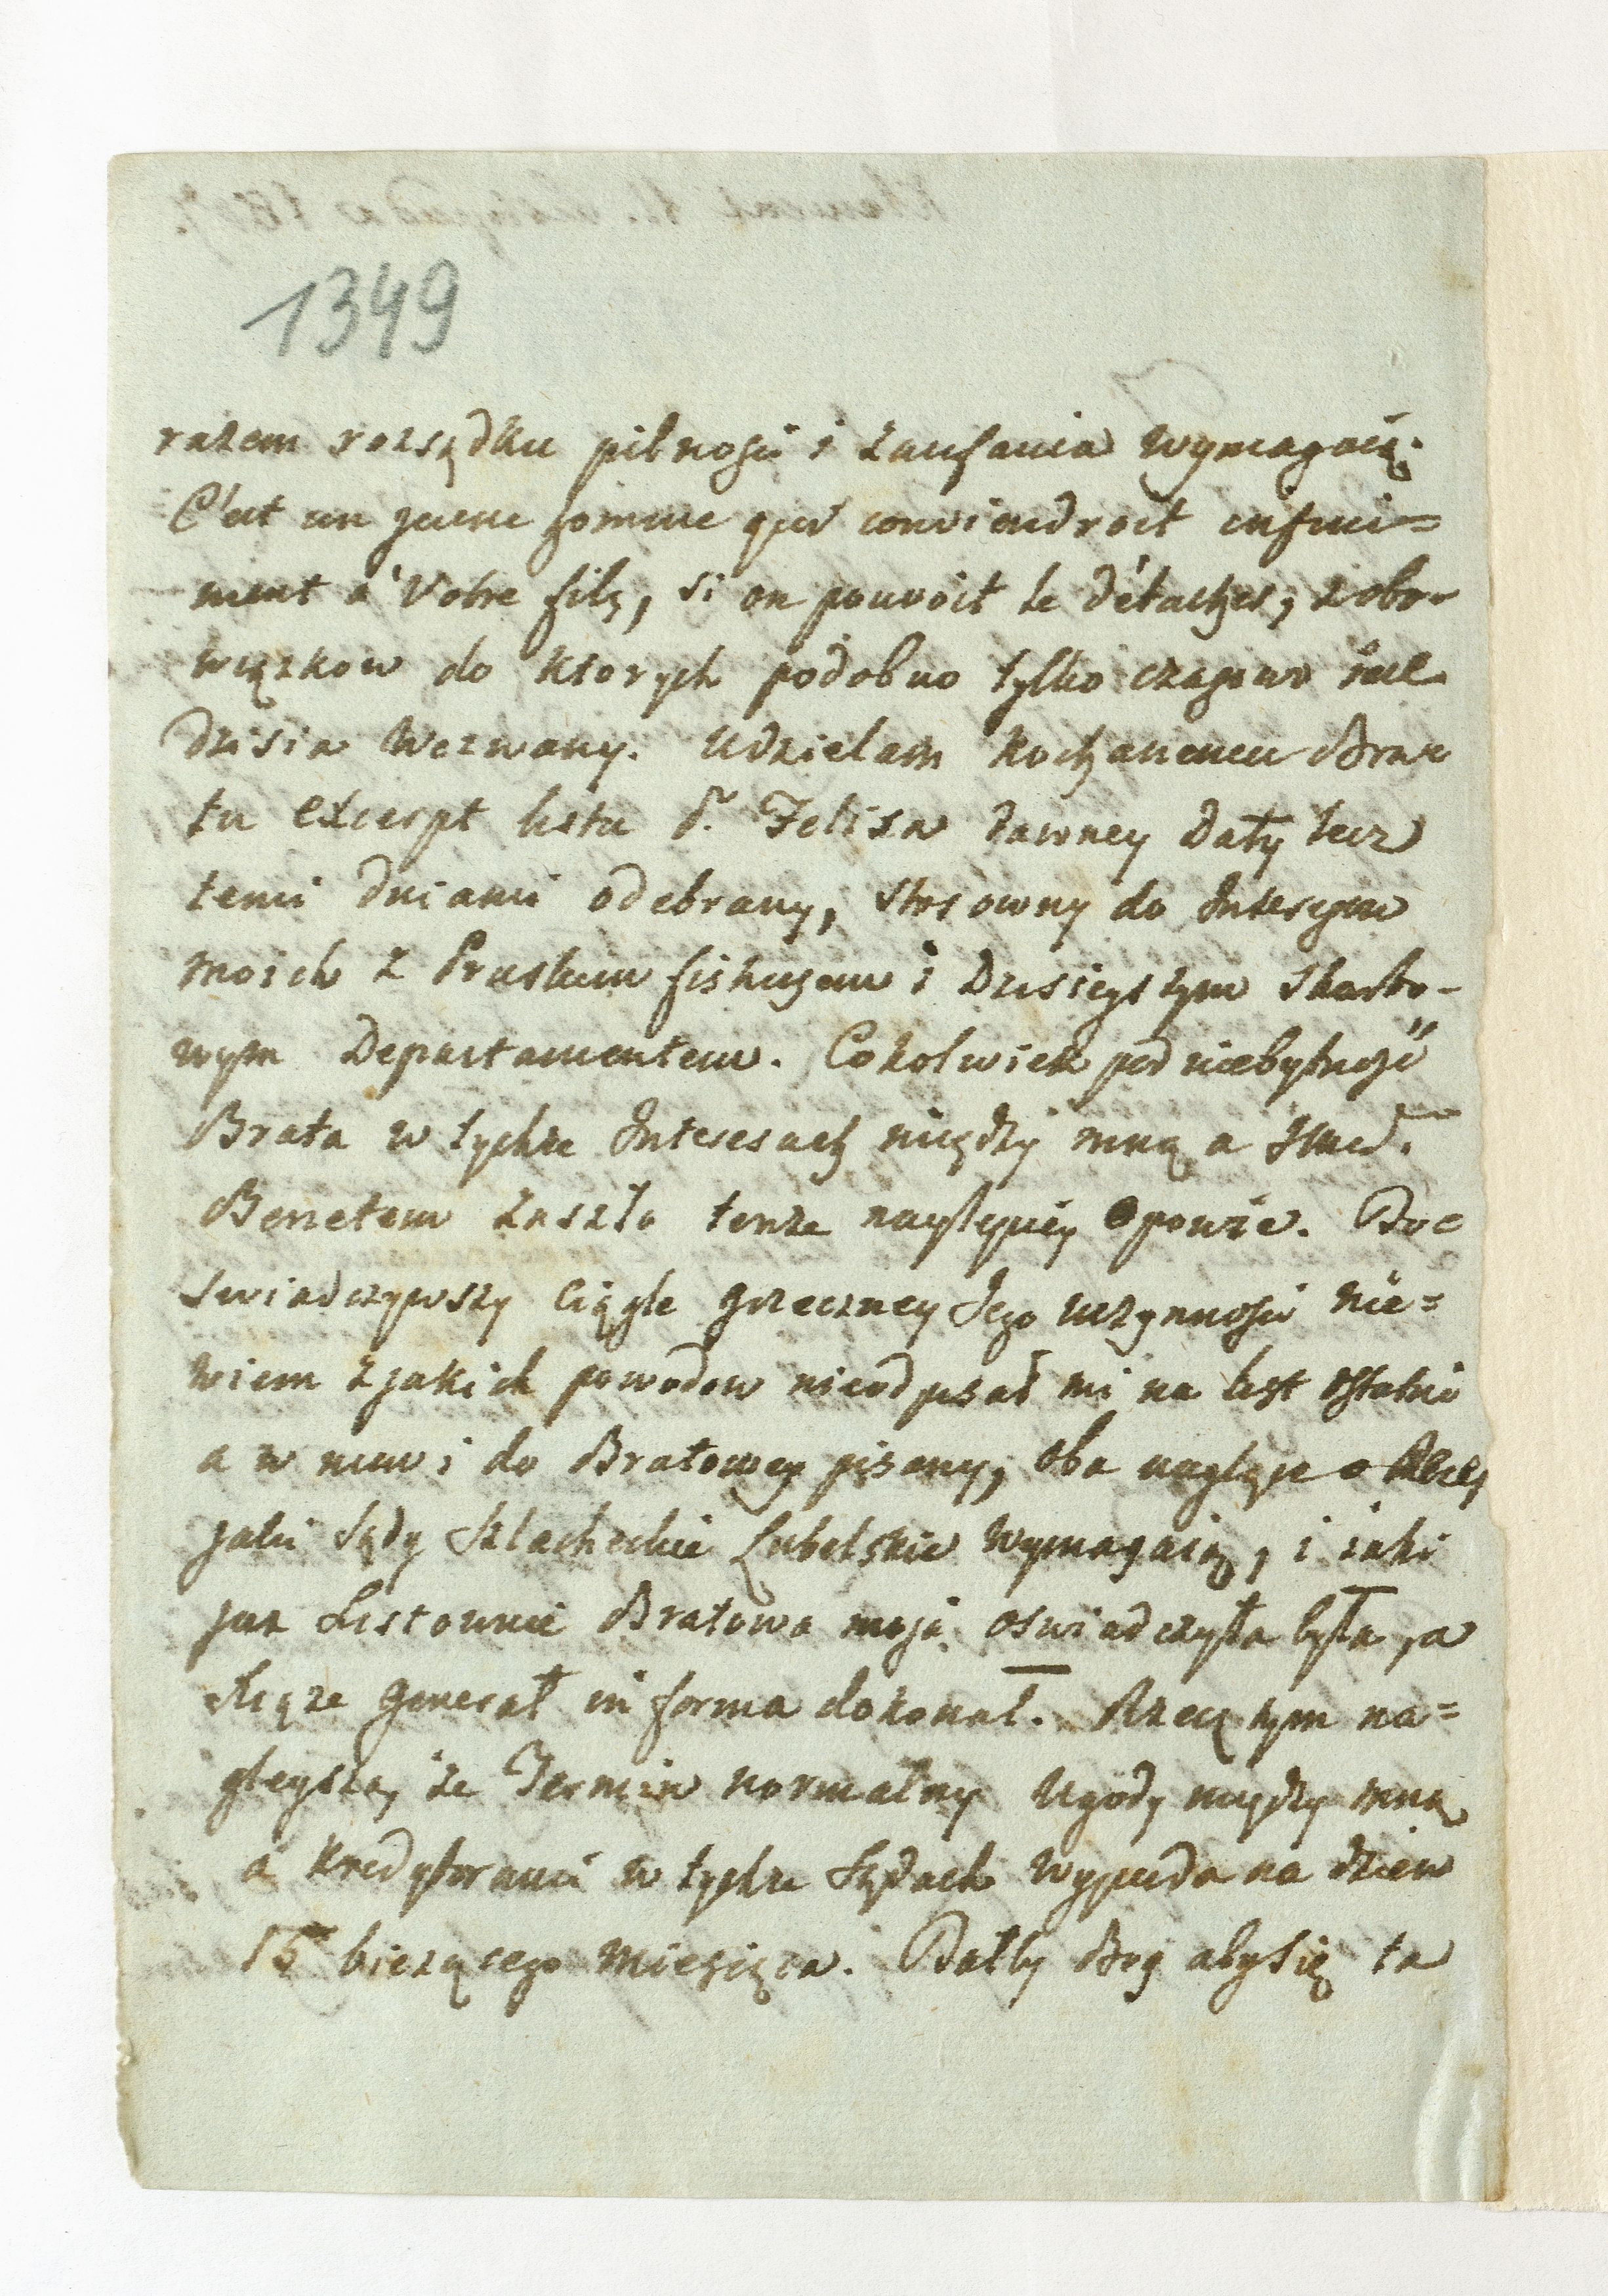 1349
razem rozsądku pilnosci i zaufania wymagaią.
C'est un jeune homme qui conviendroit infini=
ment a Votre fils, si on pouvoit le détacher, z obo-
wiązkow do ktorych podobno tylko czasowo
dzisia wezwany. Udzielam kochanemu Bra
tu excerpt listu Felixa dawney daty lecz
temi dniami odebrany, stosowny do Interesow
moich z Pruskim fiskusem i dzisieyszym skarbo-
wym Departamentem. Cokolwiek pod niebytnosć
Brata w tychże Interesach między mną a
Bernetem zaszło tenże naylepiey opowie. Do
swiadczywszy ciągle grzeczney Jego uczynnosci nie=
wiem z jakich powodow nieodpisał mi na list ostatni
a w nim i do Bratowey pisany, oba naglące o
jaki Sądy Szlacheckie Lubelskie wymagaią, i jaki
juz Listownie Bratowa moja oswiadczyła była, a
Xiąze Generał in forma dokonał. Rzecz tym na=
gleysza, ze Termin normalny Ugody między mną
a kredytorami w tychze Sądach wypada na dzien
15 biezącego miesiąca. Dałby Bog aby się ta